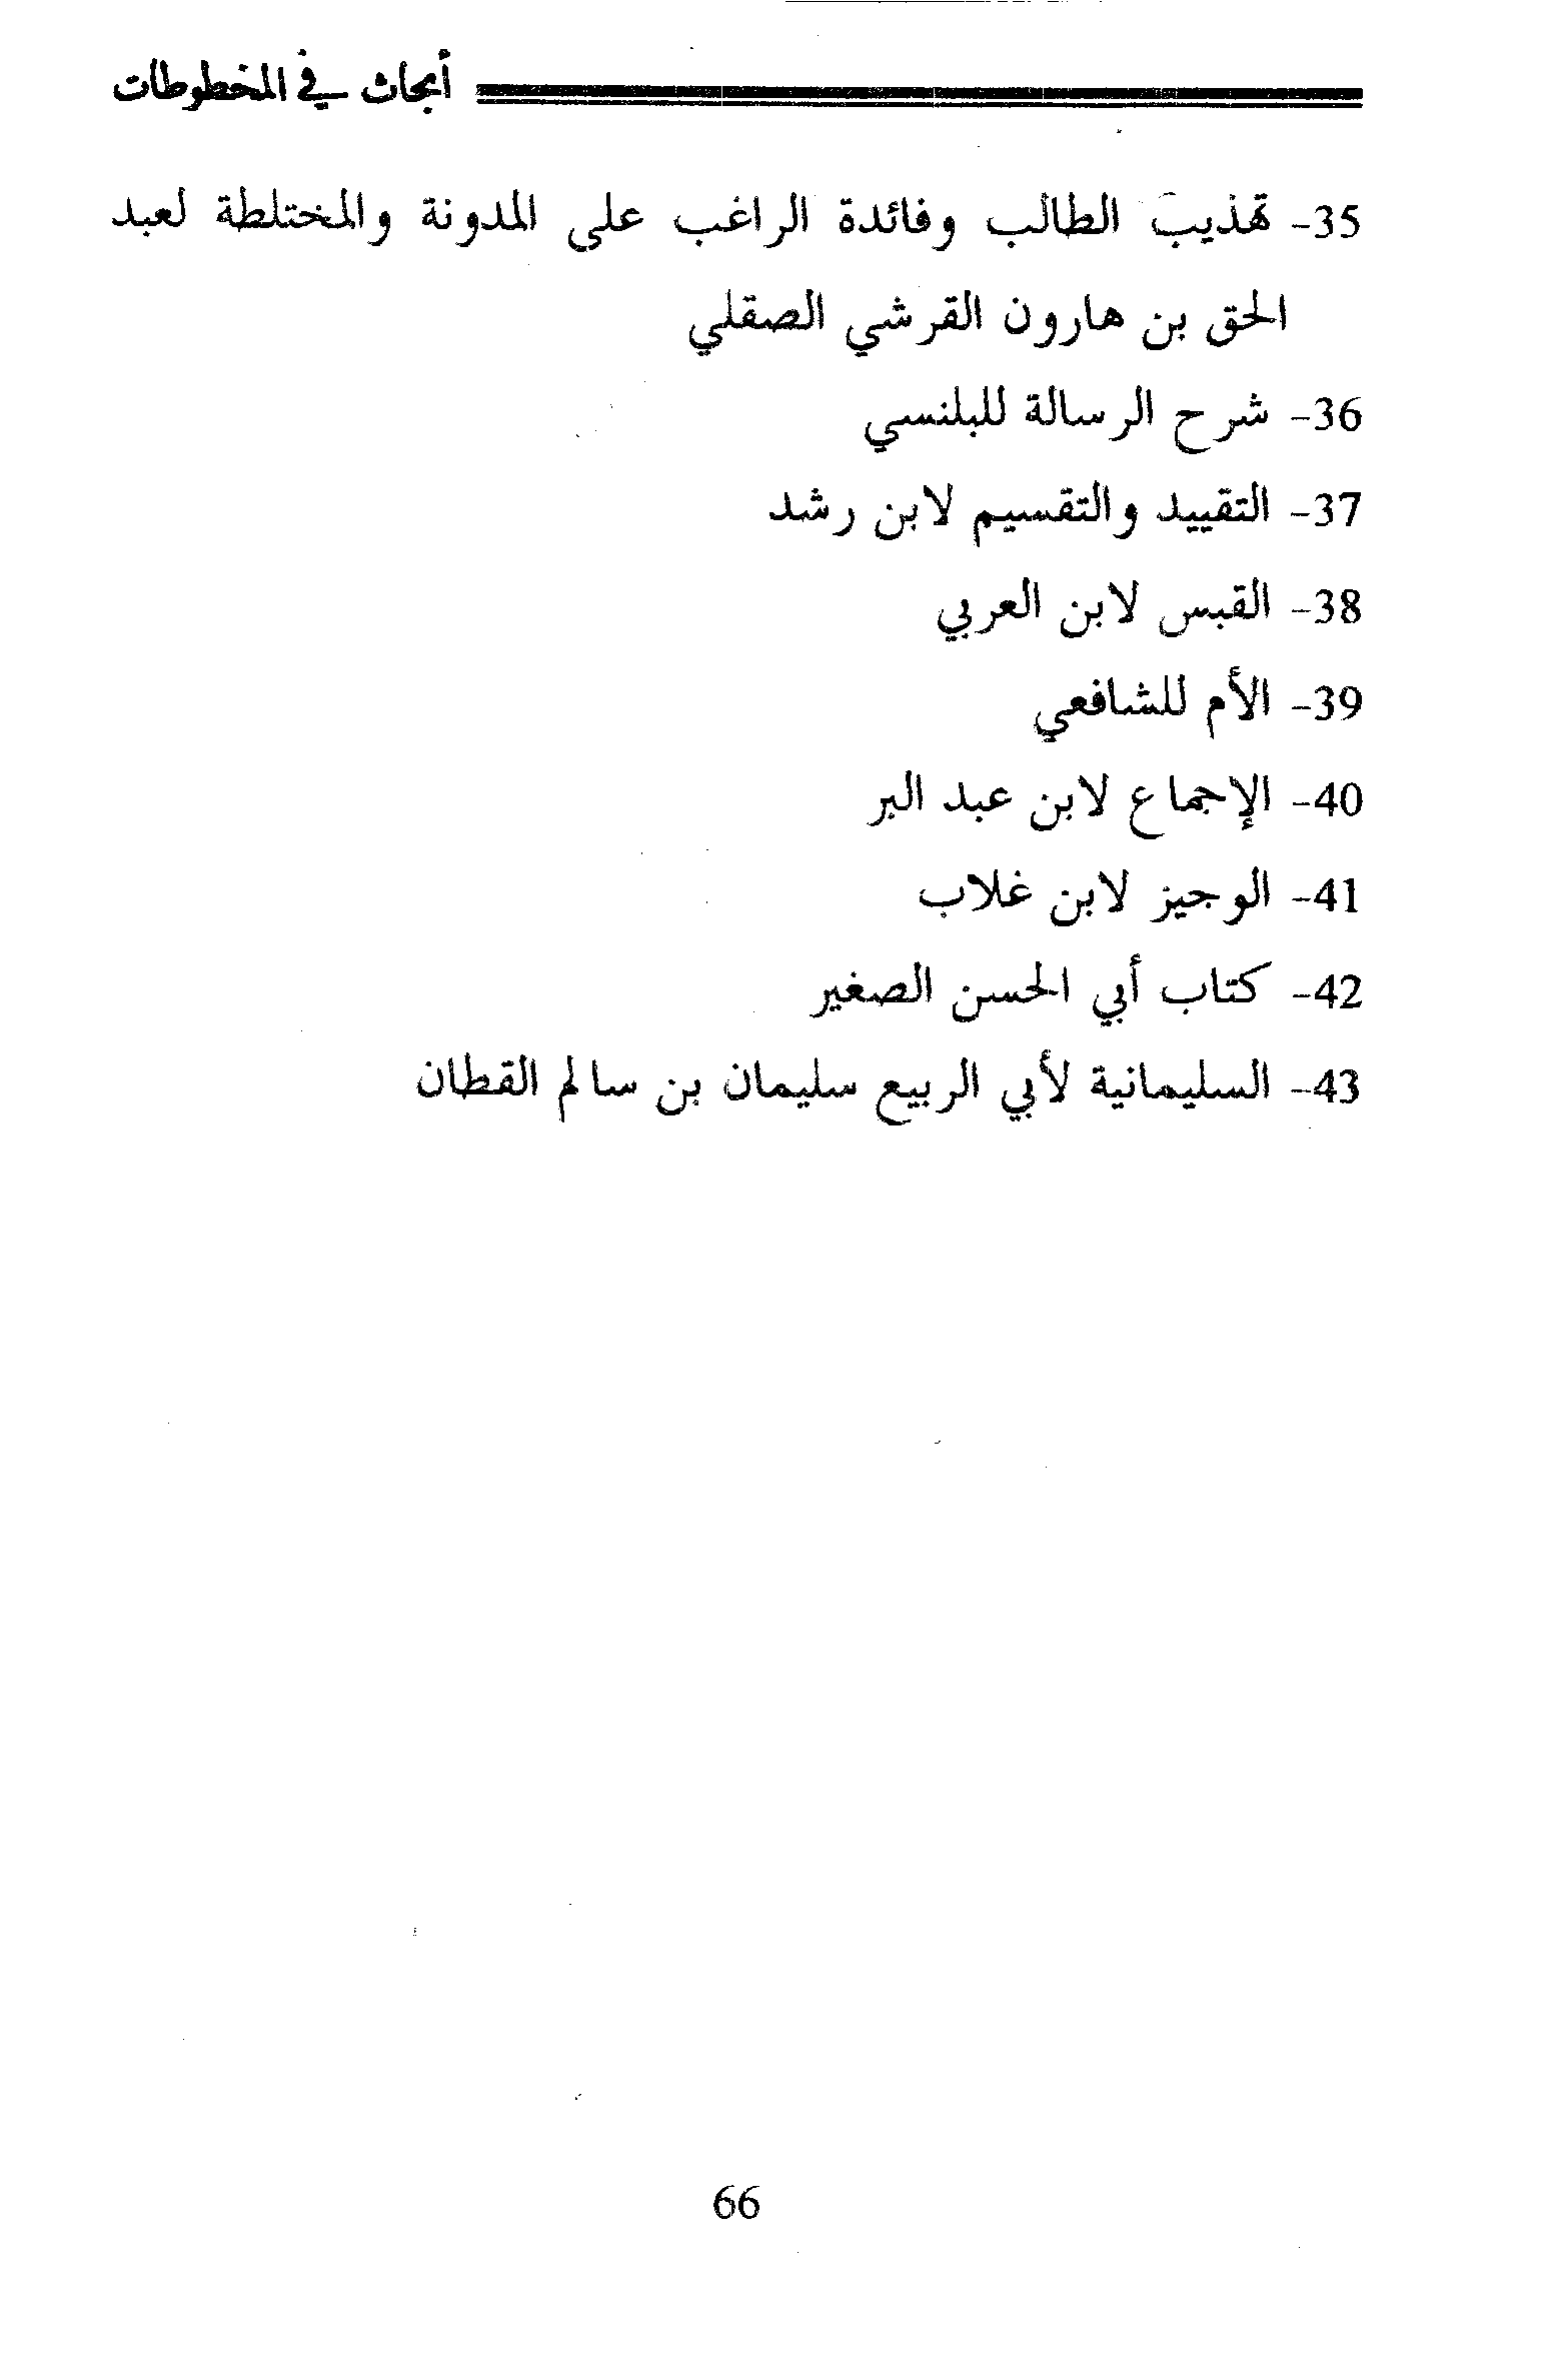 أبحاث في المخطوطات
35- تهذيب الطالب وفائدة الراغب على المدونة والمختلطة لعبد
الحق بن هارون القرشي الصقلي
36- شرح الرسالة للبلنسي
37- التقييد والتقسيم لابن رشد
38- القبس لابن العربي
39- الأم للشافعي
40- الإجماع لابن عبد البر
41- الوجيز لابن غلاب
42- كتاب أبي الحسن الصغير
43- السليمانية لأبي الربيع سليمان بن سالم القطان
66